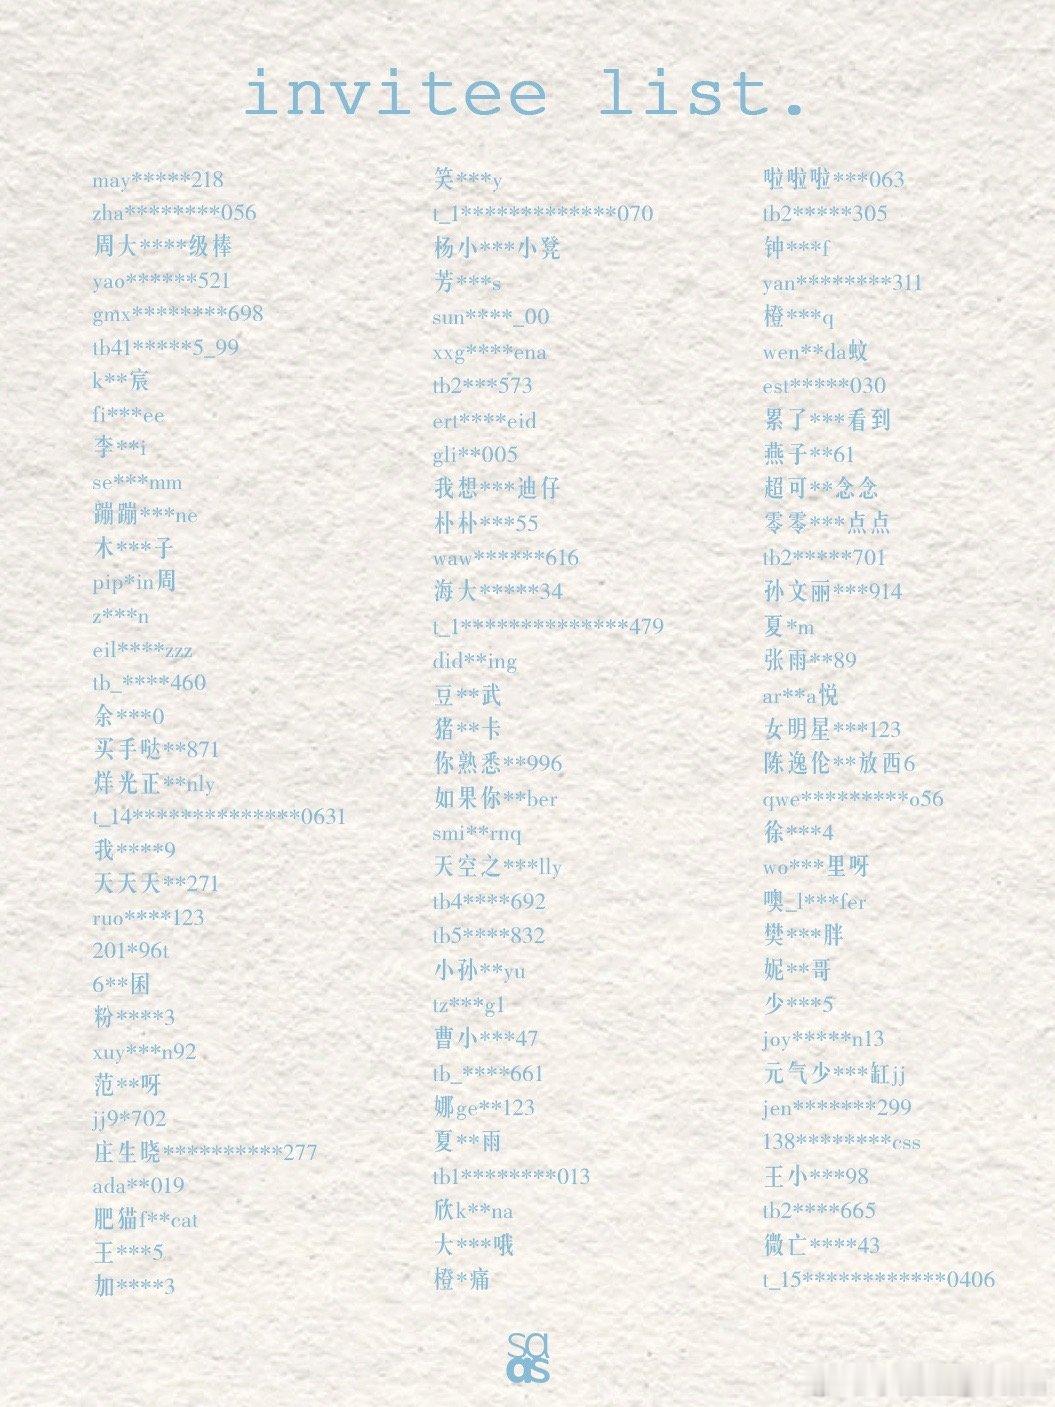 invitee list.
may*****218
zha********056
周大****级棒
yao******521
gmx********698
tb41*****5_99
k**宸
fi***ee
李**i
se***mm
蹦蹦***ne
木***子
pip*in周
z***n
eil****zzz
tb_****460
余***0
买手哒**871
烊光正**nly
t_14**************0631
我****9
天天天**271
ruo****123
201*96t
6**困
粉****3
xuy***n92
范**呀
jj9*702
庄生晓**********277
ada**019
肥猫f**cat
王***5
加****3
笑***y
t_1*************070
杨小***小凳
芳***s
sun****_00
xxg****ena
tb2***573
ert****eid
gli**005
我想***迪仔
朴朴***55
waw******616
海大*****34
t_1**************479
did**ing
豆**武
猪**卡
你熟悉**996
如果你**ber
smi**rnq
天空之***lly
tb4****692
tb5****832
小孙**yu
tz***g1
曹小***47
tb_****661
娜ge**123
夏**雨
tb1********013
欣k**na
大***哦
橙*痛
啦啦啦***063
tb2*****305
钟***f
yan********311
橙***q
wen**da蚊
est*****030
累了***看到
燕子**61
超可**念念
零零***点点
tb2*****701
孙文丽***914
夏*m
张雨**89
ar**a悦
女明星***123
陈逸伦**放西6
qwe*********o56
徐***4
wo***里呀
噢_l***fer
樊***胖
妮**哥
少***5
joy*****n13
元气少***缸jj
jen*******299
138********css
王小***98
tb2****665
微亡****43
t_15************0406
sa
as